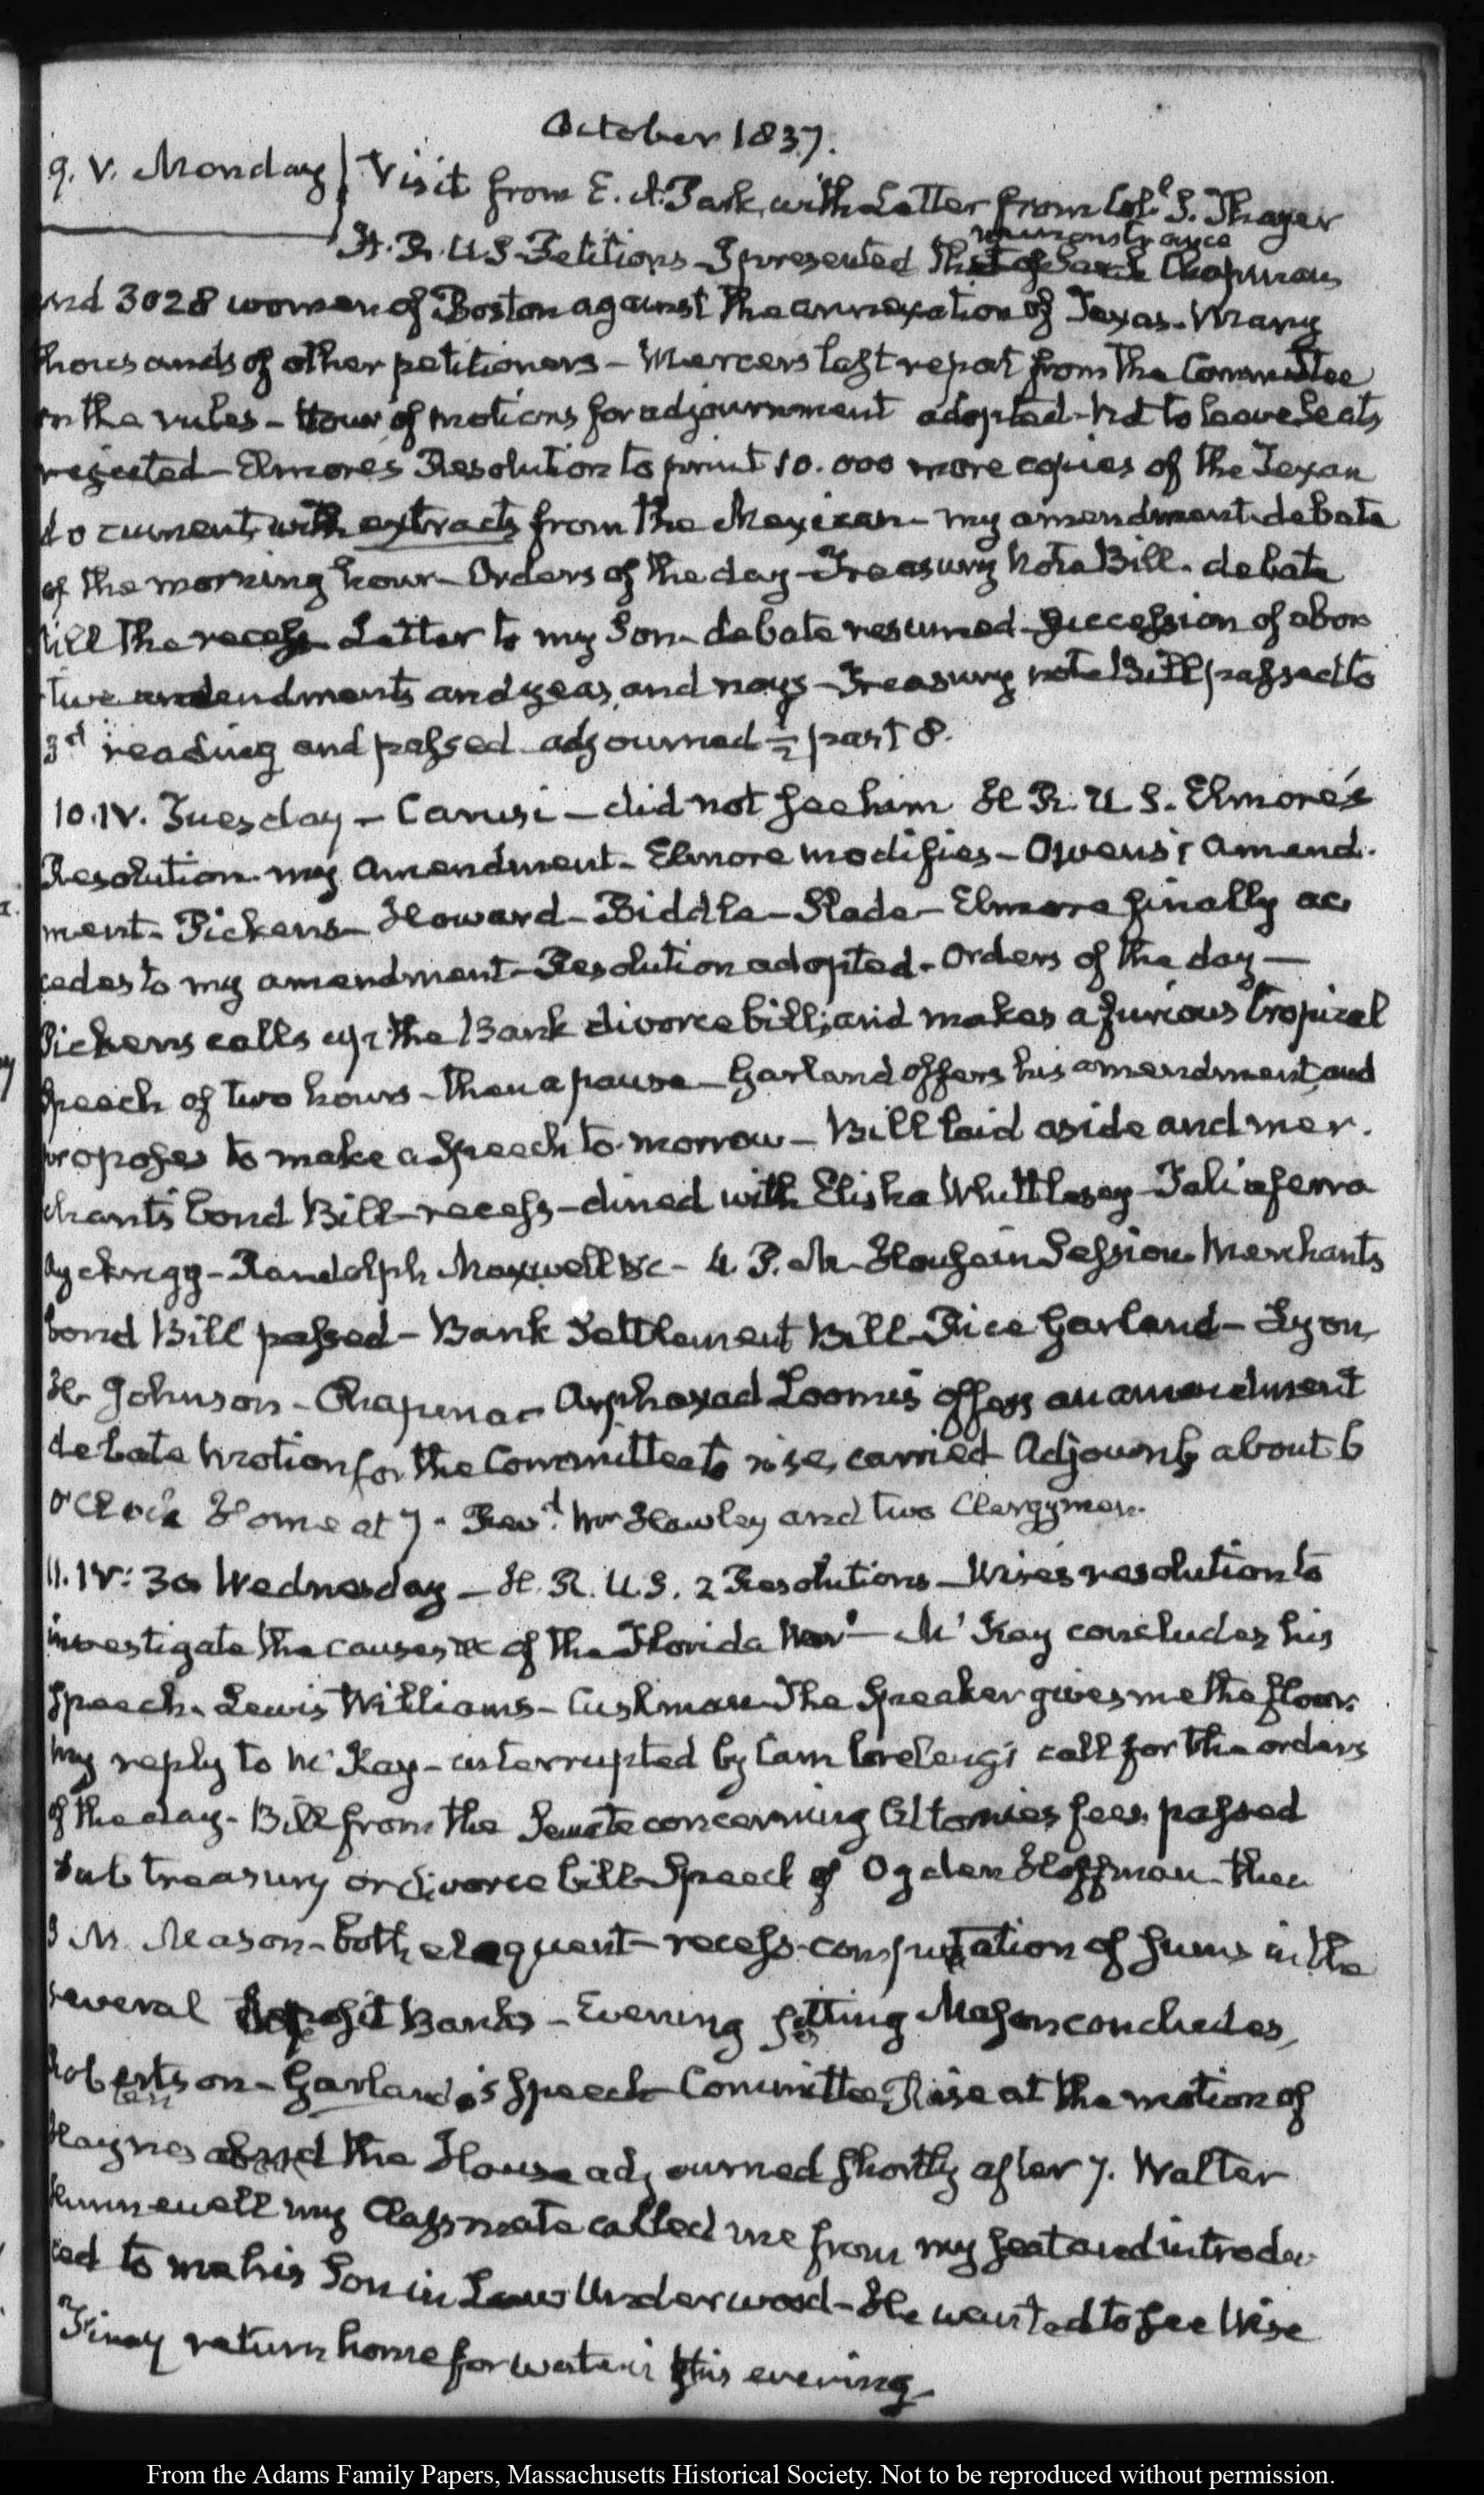 October 1837.
9. V. Monday Visit from E. A. Park, with Letter from Col.l S. Thayer
H. R. U.S. Petitions. I presented the remonstrance of Sarah Chapman
and 3028 women of Boston against the annexation of Texas. Many
thousands of other petitioners – Mercers last report from the Committee
on the rules – Hour of motions for adjournment adopted – Not to leave Seats
rejected – Elmore's Resolution to print 10.000 more copies of the Texan
document, with extracts from the Mexican – my amendment. debate
of the morning hour – Orders of the day – Treasury Note Bill. debate
till the recess Letter to my Son – debate resumed – Succession of abor
tive amendments and yeas, and nays – Treasury note Bill passed to
3d reading and passed adjourned ½ past 8.
10. IV. Tuesday – Carusi – did not see him H. R. U. S. Elmore's
Resolution. my Amendment – Elmore modifies – Owens's Amend.
ment – Pickens – Howard – Biddle – Slade – Elmore finally ac
cedes to my amendment – Resolution adopted. Orders of the day —
Pickens calls up the Bank divorce bill, and makes a furious tropical
Speech of two hours – then a pause – Garland offers his amendment, and
proposes to make a Speech to-morrow – Bill laid aside and mer.
chants bond Bill – recess – dined with Elisha Whittlesey – Taliaferro
Ayckrigg – Randolph Maxwell &c – 4 P. M. House in Session Merchants
bond Bill passed – Bank Settlement Bill – Rice Garland – Lyon,
H. Johnson – Chapman – Arphaxad Loomis offers an amendment
debate Motion for the Committee to rise, carried Adjourned about 6
O'Clock Home at 7. Revd. Wm Hawley and two Clergymen.
11. IV: 30 Wednesday – H. R. U. S. 2 Resolutions – Wise's resolution to
investigate the causes &c of the Florida War – McKay concludes his
Speech. Lewis Williams – Cushman The Speaker gives me the floor.
My reply to McKay – interrupted by Cambreleng's call for the orders
of the day. Bill from the Senate concerning Attornies fees. passed
Sub treasury or divorce bill – Speech of Ogden Hoffman – then
S. M. Mason – both eloquent – recess – computation of sums in the
several deposit Banks – Evening sitting Mason concludes,
Robertson – Garland's Speech Committee Rise at the motion of
Haynes and the House adjourned shortly after 7. Walter
Hunnewell my Classmate called me from my seat and introdu
ced to me his Son in Law Underwood – He wanted to see Wise
return home for this evening
From the Adams Family Papers, Massachusetts Historical Society. Not to be reproduced without permission.